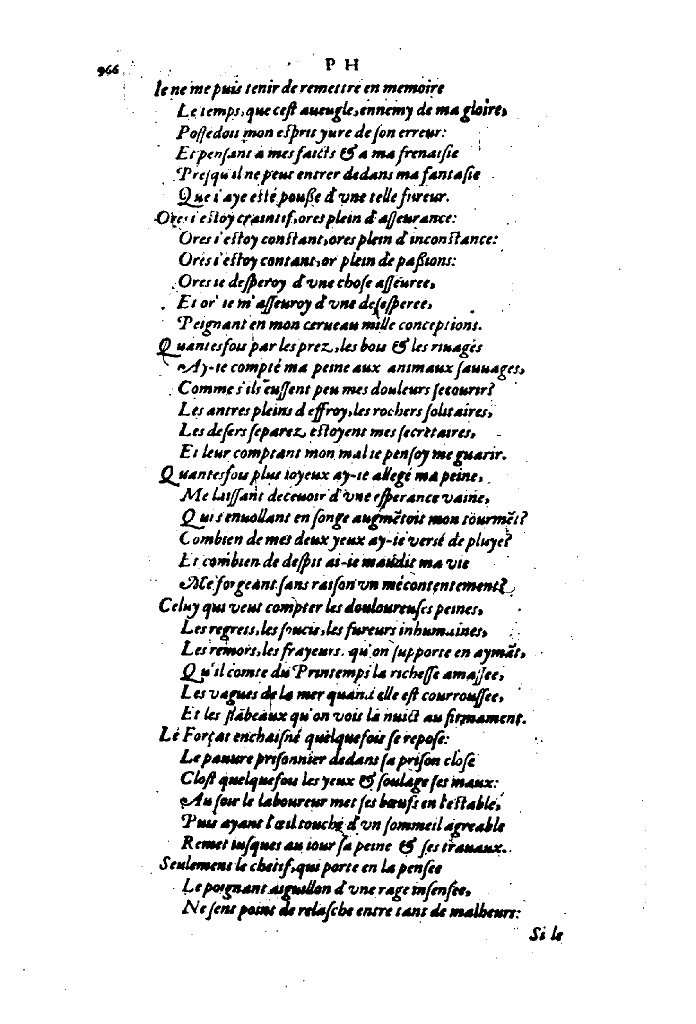 966 PH
Ie ne me puis tenir de remettre en memoire
Le temps, que cest aueugle, ennemy de ma gloire,
Possedoit mon esprit yure de son erreur:
Et pensant a mes faicts & a ma frenaisie
Presqu'il ne peut entrer dedans ma fantasie
Que i'aye esté poußé d'vne telle fureur.
Ores i'estoy craintif, ores plein d'asseurance:
Ores i'estoy constant, ores plein d'inconstance:
Ores i'estoy contant, or plein de paßions:
Ores ie desperoy d'vne chose asseuree,
Et or' ie m'asseuroy d'vne desesperee,
Peignant en mon cerueau mille conceptions.
Quantesfois par les prez, les bois & les riuages
Ay-ie compté ma peine aux animaux sauuages,
Comme s'ils eussent peu mes douleurs secourir?
Les antres pleins d'effroy, les rochers solitaires,
Les desers separez, estoyent mes secretaires,
Et leur comptant mon mal ie pensoy me guarir.
Quantesfois plus ioyeux ay-ie allegé ma peine,
Me laissant deceuoir d'vne esperance vaine,
Qui s'enuollant en songe augmētoit mon tourmēt?
Combien de mes deux yeux ay-ie versé de pluye?
Et combien de despit ai-ie maudit ma vie
Me forgeant sans raison vn mécontentement?
Celuy qui veut compter les douloureuses peines,
Les regrets, les soucis, les fureurs inhumaines,
Les remors, les frayeurs, qu'on supporte en aymāt,
Qu'il comte du Printemps la richesse amassee,
Les vagues de la mer quand elle est courroussee,
Et les flābeaux qu'on voit la nuict au firmament.
Le Forçat enchaisné quelquefois se repose:
Le pauure prisonnier dedans sa prison close
Clost quelquefois les yeux & soulage ses maux:
Au soir le laboureur met ses bœufs en l'estable,
Puis ayant l'œil touché d'vn sommeil agreable
Remet iusques au iour sa peine & ses trauaux.
Seulement le chetif, qui porte en la pensee
Le poignant aiguillon d'vne rage insensee,
Ne sent point de relasche entre tant de malheurs:
Si le